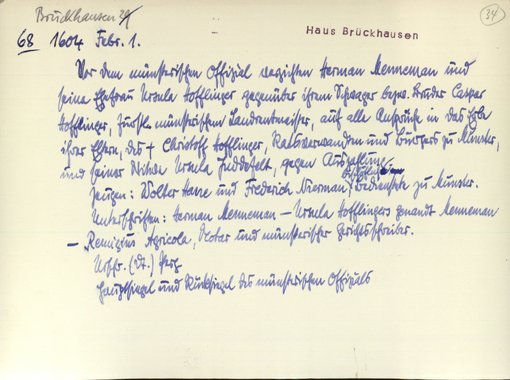 Brückhausen 
34
Haus Brückhausen
68 1604 Febr. 1.
Vor dem münsterischen Offizial verzichten Herman Menneman und
seine Ehefrau Ursula Hofflinger gegenüber ihrem Schwager bezw. Bruder Caspar
Hofflinger, Fürstl. münsterischen Landrentmeister, auf alle Ansprüche in das Erbe
ihrer Eltern, des † Christoff Hofflinger, Ratsverwandten und Bürgers zu Münster,
und seiner Witwe Ursula, gegen Auszahlung
Zeugen: Wolter Hase und Frederich Nierman, Bediensteте zu Münster.
Unterschriften: Herman Menneman – Ursula Hofflingers genandt Menneman
– Remigius Agricola, Notar und münsterischer Gerichtsschreiber.
Urschr. (dt.) Perg.
Hauptsiegel und Rücksiegel des münsterischen Offizials